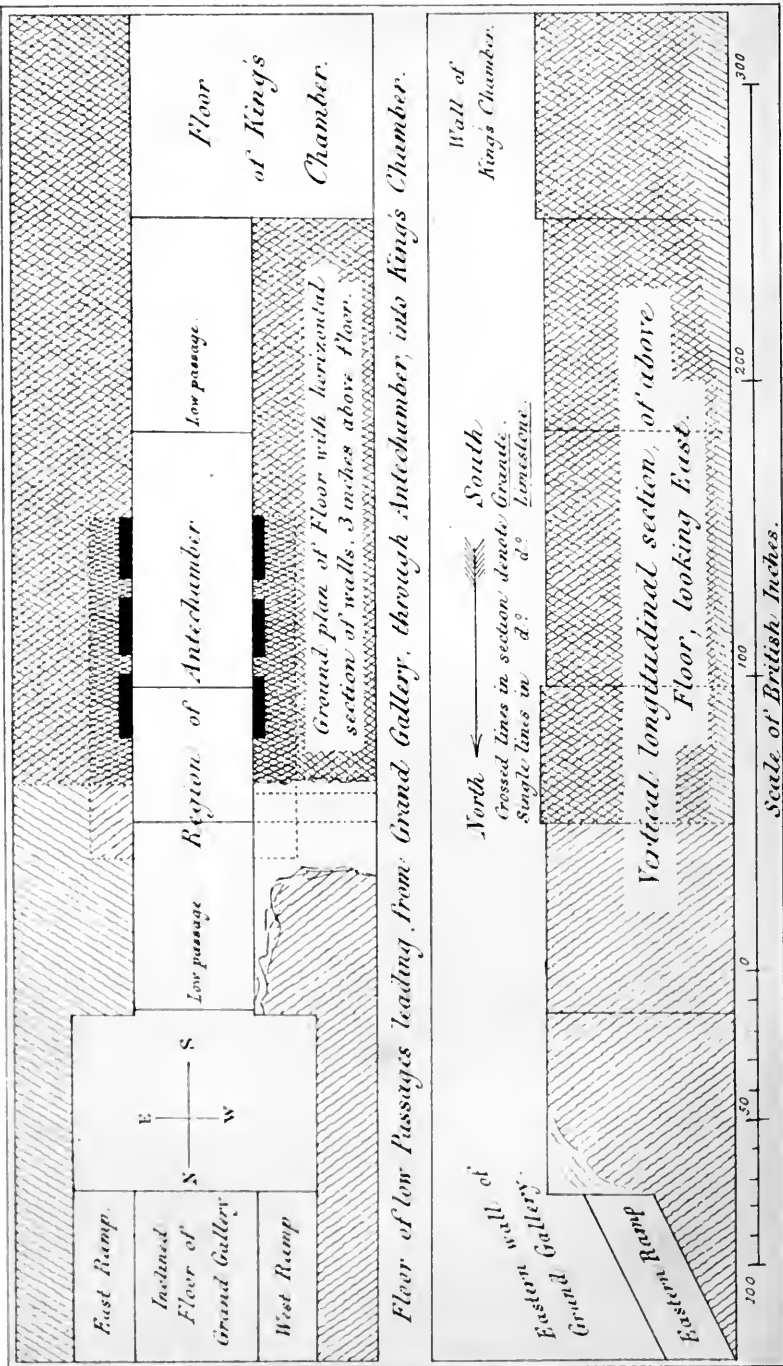 East Ramp.
Inclined
Floor of
Grand Gallery
West Ramp
N
E
S
W
Low passage
Region of Antechamber
Low passage
Floor
of King's
Chamber.
Ground plan of Floor with horizontal
section of walls, 3 inches above floor.
Floor of low Passages leading from Grand Gallery, through Antechamber, into King's Chamber.
Eastern wall of
Grand Gallery.
Eastern Ramp
North
South
Crossed lines in section denote Granite.
Single lines in dº dº Limestone.
Wall of
King's Chamber.
Vertical longitudinal section, of above
Floor, looking East.
100
50
0
100
200
300
Scale of British Inches